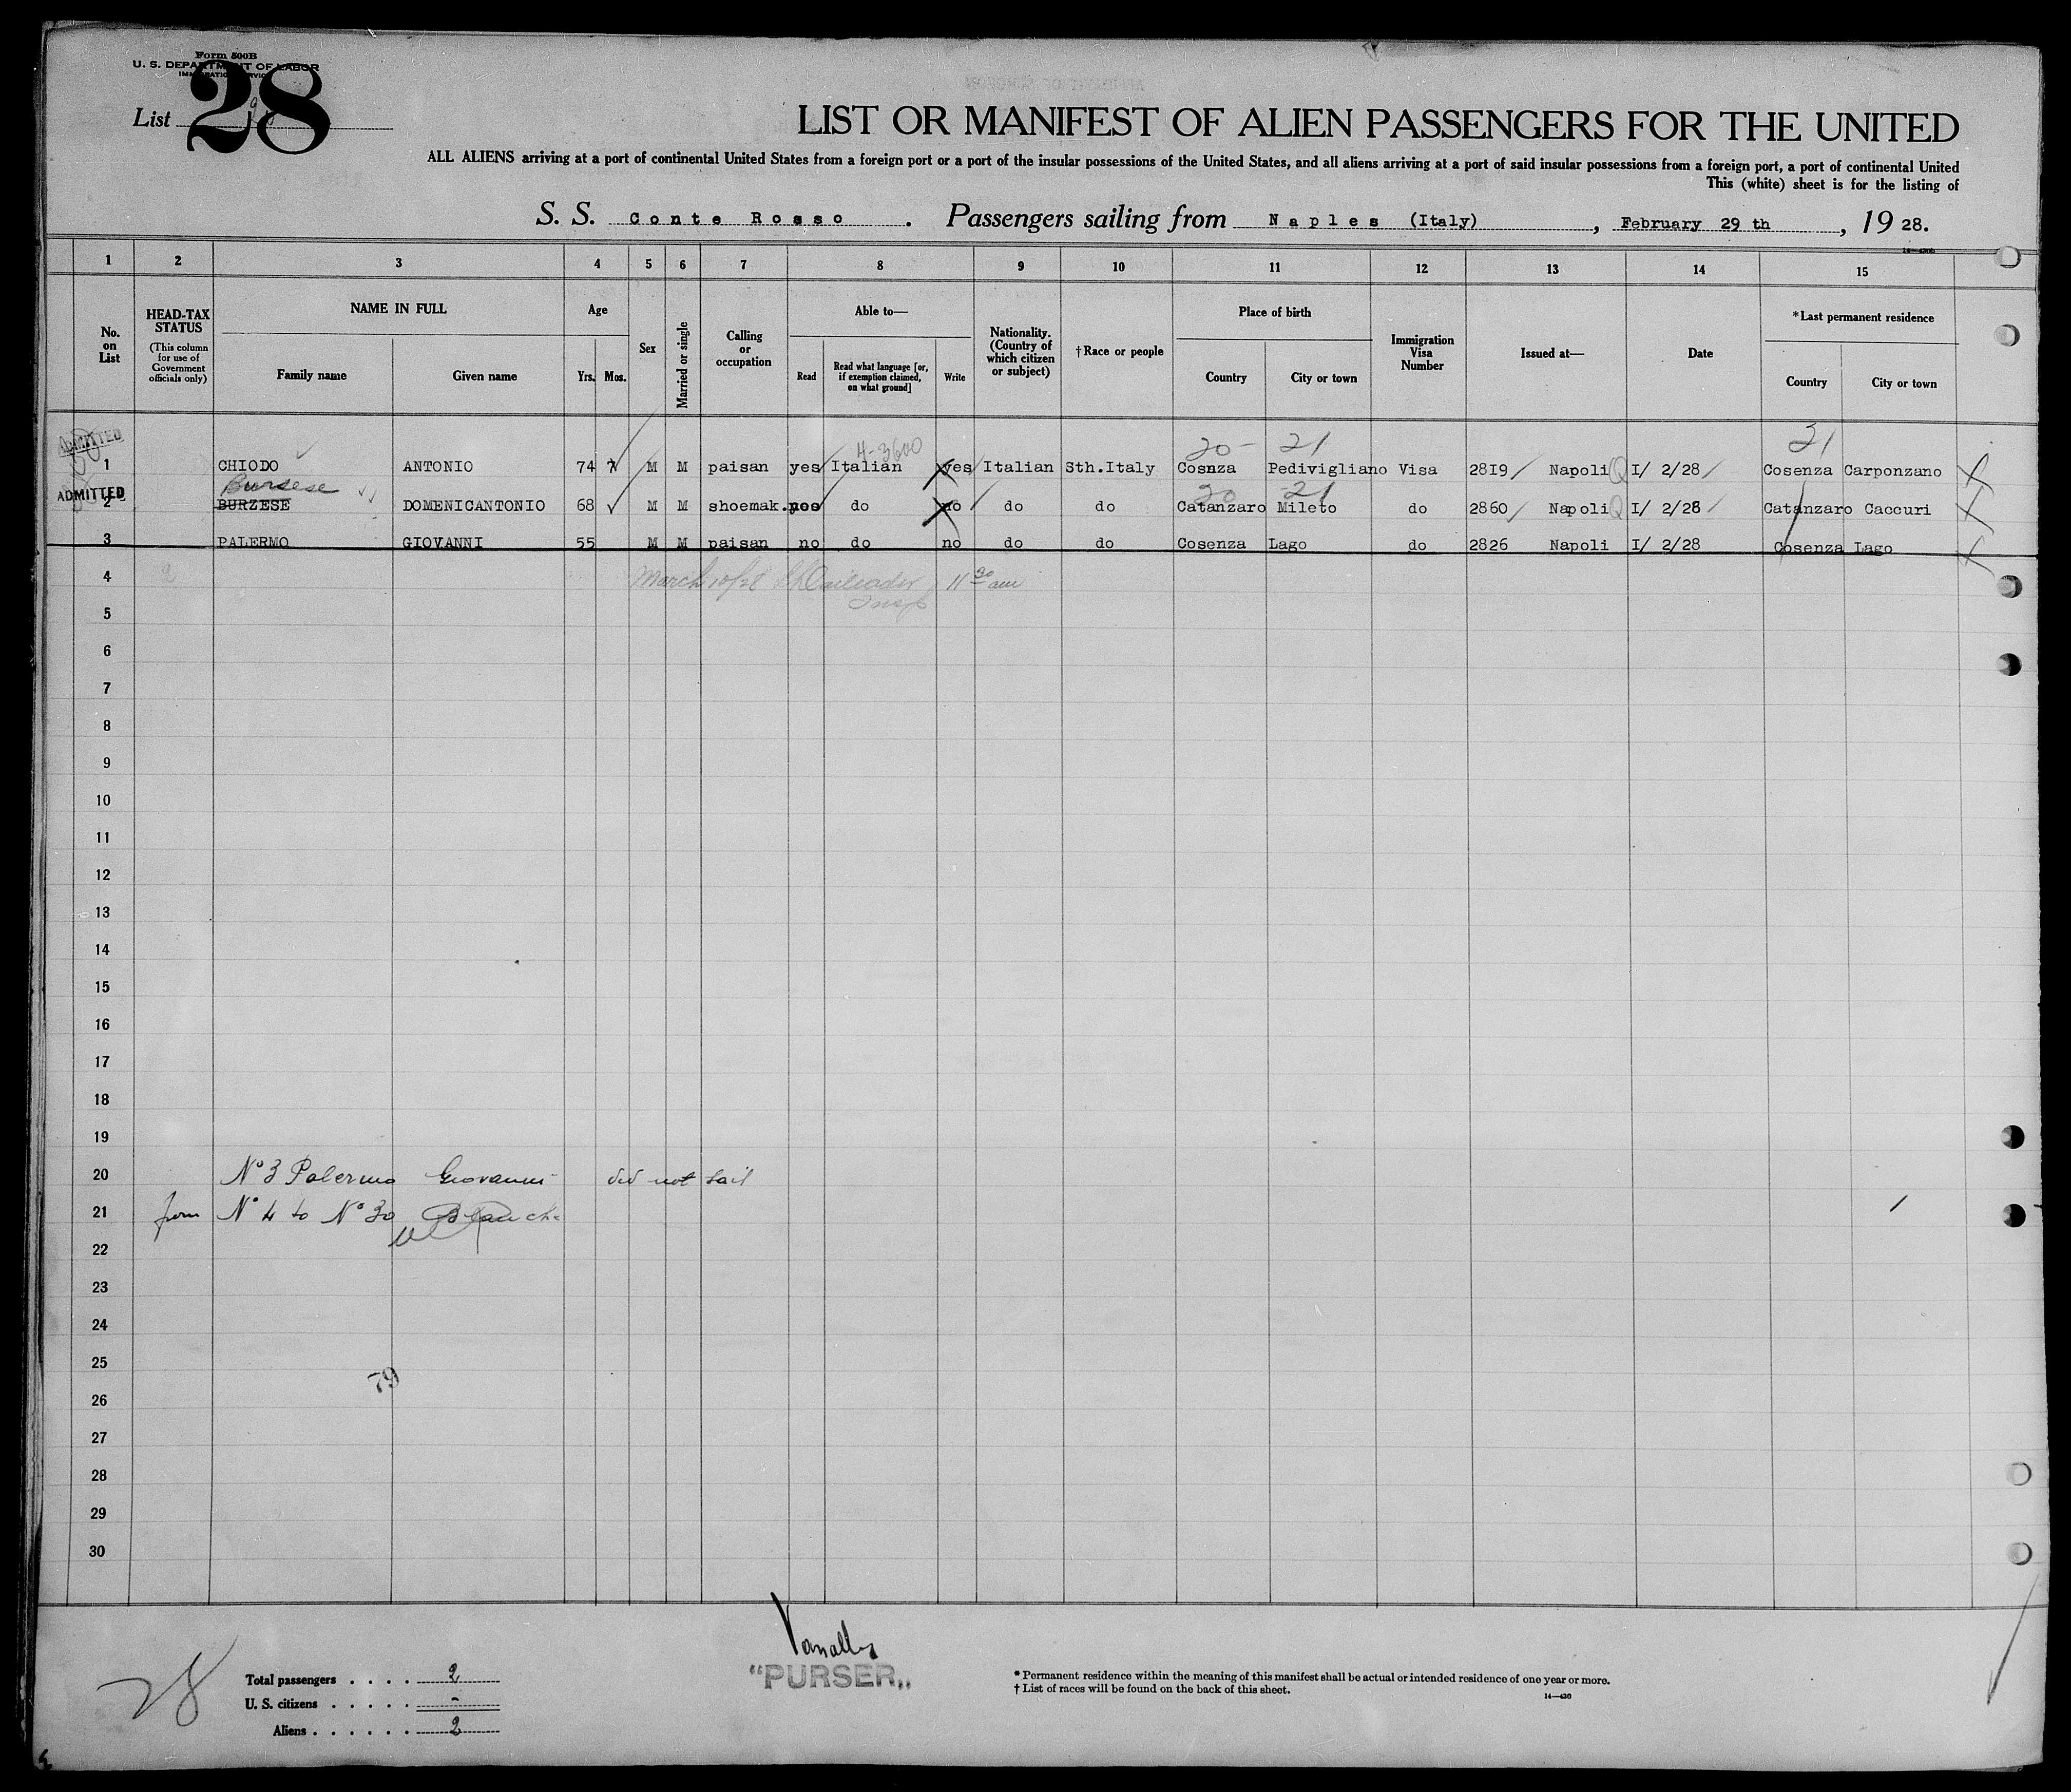 Form 500B
U. S. DEPARTMENT OF LABOR
IMMIGRATION SERVICE
List 28
LIST OR MANIFEST OF ALIEN PASSENGERS FOR THE UNITED
ALL ALIENS arriving at a port of continental United States from a foreign port or a port of the insular possessions of the United States, and all aliens arriving at a port of said insular possessions from a foreign port, a port of continental United
This (white) sheet is for the listing of
S. S. Conte Rosso . Passengers sailing from Naples (Italy) , February 29 th , 19 28.
1 2 3 4 5 6 7 8 9 10 11 12 13 14 15
No. on List
HEAD-TAX STATUS
(This column for use of Government officials only)
NAME IN FULL
Family name
Given name
Age
Yrs. Mos.
Sex
Married or single
Calling or occupation
Able to—
Read
Read what language [or, if exemption claimed, on what ground]
Write
Nationality. (Country of which citizen or subject)
†Race or people
Place of birth
Country
City or town
Immigration Visa Number
Issued at—
Date
*Last permanent residence
Country
City or town
ADMITTED
4-3600
20- 21 21
1 CHIODO ANTONIO 74 M M paisan yes Italian yes Italian Sth.Italy Cosnza Pedivigliano Visa 2819 Napoli I/ 2/28 Cosenza Carponzano
Bursese
20 21
ADMITTED
2 BURZESE DOMENICANTONIO 68 M M shoemak. do no do do Catanzaro Mileto do 2860 Napoli I/ 2/28 Catanzaro Caccuri
3 PALERMO GIOVANNI 55 M M paisan no do no do do Cosenza Lago do 2826 Napoli I/ 2/28 Cosenza Lago
4 March 10/28 11 30 am
Insp
5
6
7
8
9
10
11
12
13
14
15
16
17
18
19
20 No 3 Palermo Giovanni did not sail
21 from No 4 to No 30
22
23
24
25
79
26
27
28
29
30
28
Total passengers . . . . 2
U. S. citizens . . . . . -
Aliens . . . . . . 2
"PURSER„
* Permanent residence within the meaning of this manifest shall be actual or intended residence of one year or more.
† List of races will be found on the back of this sheet.
14—430